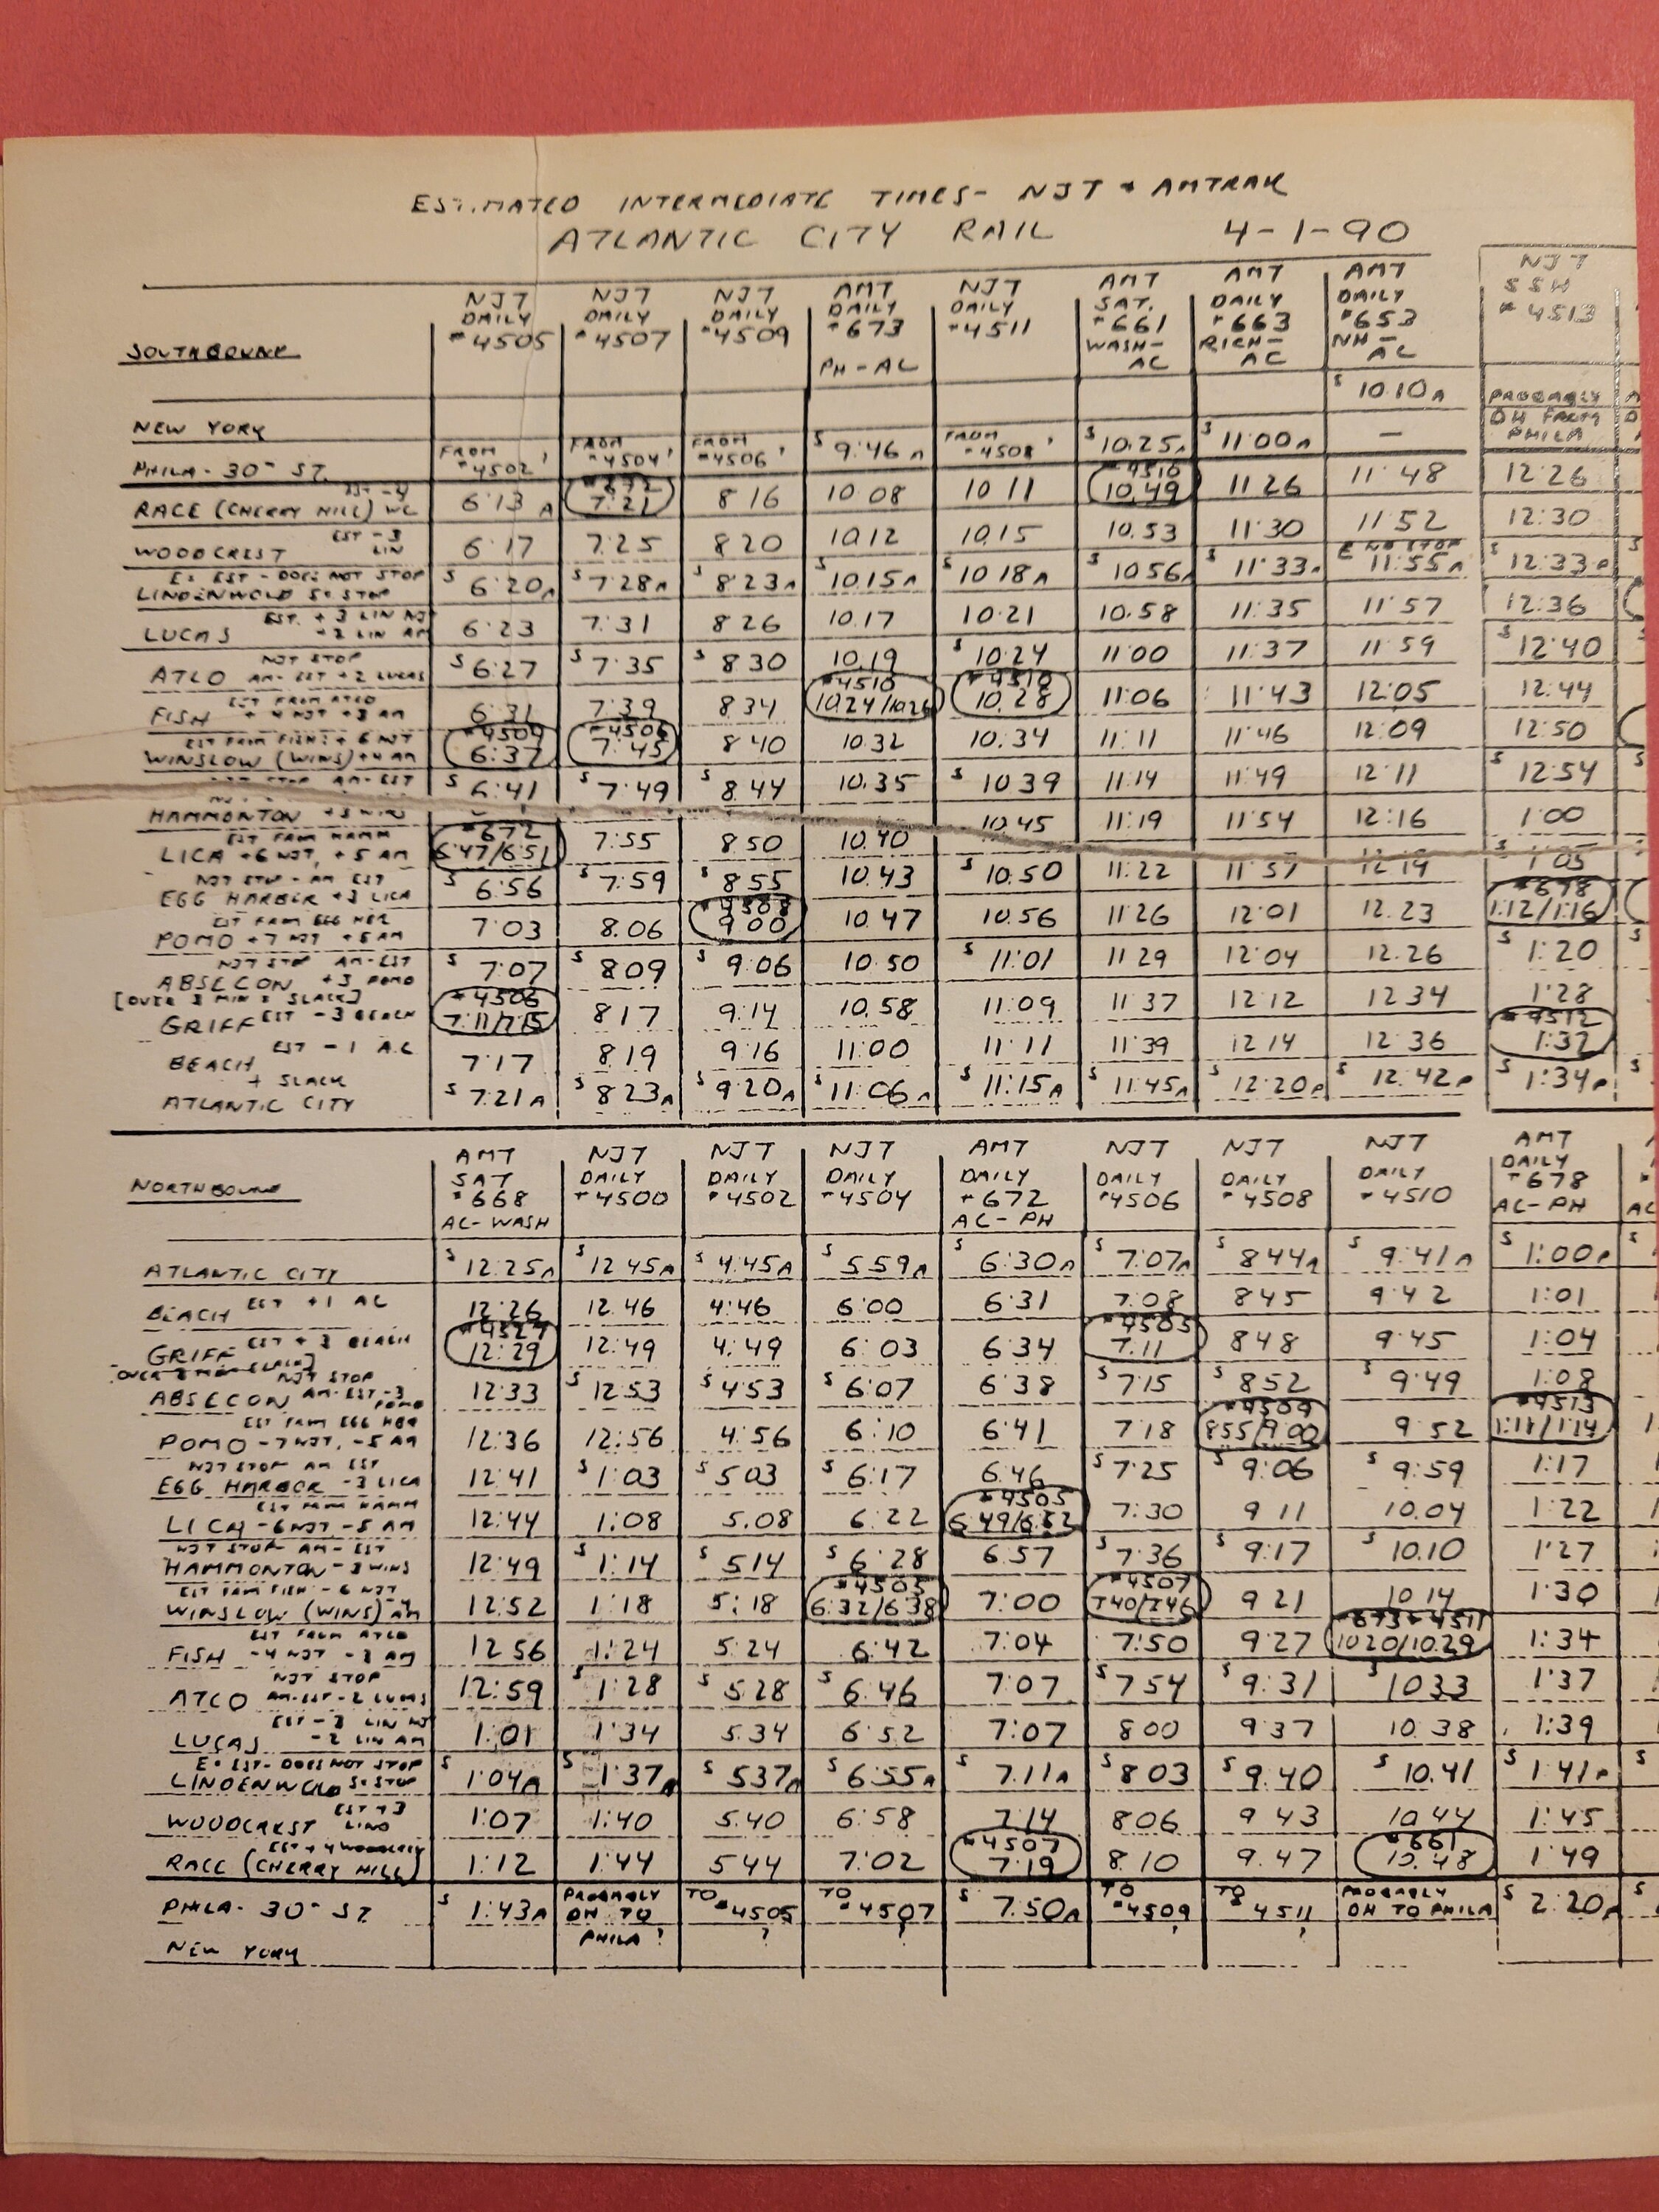 ESTIMATED INTERMEDIATE TIMES- NJT + AMTRAK
ATLANTIC CITY RAIL 4-1-90
SOUTHBOUND
NJT DAILY #4505
NJT DAILY #4507
NJT DAILY #4509
AMT DAILY #673 PH-AC
NJT DAILY #4511
AMT SAT. #661 WASH-AC
AMT DAILY #663 RICH-AC
AMT DAILY #653 NH-AC
NJT SSH #4513
NEW YORK S 10:10A PROBABLY DH FROM PHILA
PHILA- 30TH ST. FROM #4502 FROM #4504 FROM #4506 S 9:46A FROM #4508 S 10:25A S 11:00A —
RACE (CHERRY HILL) EST -4 WC 6:13A #672 7:21 8 16 10 08 10 11 #4510 10.49 11 26 11 48 12:26
WOODCREST EST -3 LIN 6:17 7:25 8 20 10.12 10.15 10.53 11:30 11 52 12:30
E: EST - DOES NOT STOP
LINDENWOLD S: STOP S 6:20A S 7:28A S 8:23A S 10.15A S 10 18A S 10 56A S 11:33A E NO STOP 11:55A S 12:33P S
LUCAS EST. +3 LIN NJ +2 LIN AM 6:23 7:31 8 26 10.17 10:21 10.58 11:35 11:57 12:36
ATCO NJT STOP AM- EST +2 LUCAS S 6:27 S 7:35 S 8 30 10.19 S 10:24 11:00 11:37 11 59 S 12:40 S
FISH EST FROM ATCO +4 NJT +3 AM 6:31 7:39 8 34 #4510 10.24/10.26 #4510 10.28 11:06 11:43 12:05 12:44
WINSLOW (WINS) EST FROM FISH: +6 NJT +4 AM #4504 6:37 #4506 7:45 8 40 10:32 10.34 11:11 11:46 12:09 12:50
HAMMONTON +3 WINS S 6:41 S 7:49 S 8 44 10.35 S 10 39 11:14 11:49 12:11 S 12:54 S
LICA EST FROM HAMM +6 NJT, +5 AM #672 6:47/6:51 7:55 8 50 10.40 10.45 11:19 11:54 12:16 1:00
EGG HARBOR NJT STOP - AM EST +3 LICA S 6:56 S 7:59 S 8 55 10.43 S 10.50 11:22 11 57 12 19 S 1:05
POMO EST FROM EGG HBR +7 NJT +5 AM 7:03 8.06 #4508 9 00 10.47 10.56 11:26 12:01 12.23 #678 1:12/1:16
ABSECON NJT STOP AM-EST +3 POMO S 7:07 S 8 09 S 9:06 10 50 S 11:01 11 29 12:04 12.26 S 1:20 S
[OVER 3 MIN = SLACK]
GRIFF EST -3 BEACH #4506 7:11/7:15 8 17 9:14 10.58 11:09 11:37 12:12 12 34 1:28
BEACH EST -1 A.C 7:17 8 19 9:16 11:00 11:11 11:39 12 14 12 36 #4512 1:32
ATLANTIC CITY + SLACK S 7:21A S 8 23A S 9:20A S 11:06A S 11:15A S 11:45A S 12:20P S 12:42P S 1:34P S
NORTHBOUND
AMT SAT #668 AC-WASH
NJT DAILY #4500
NJT DAILY #4502
NJT DAILY #4504
AMT DAILY #672 AC-PH
NJT DAILY #4506
NJT DAILY #4508
NJT DAILY #4510
AMT DAILY #678 AC-PH
AC
ATLANTIC CITY S 12:25A S 12 45A S 4:45A S 5 59A S 6:30A S 7:07A S 8 44A S 9:41A S 1:00P S
BEACH EST +1 AC 12:26 12.46 4:46 6:00 6:31 7:08 8 45 9 42 1:01
GRIFF EST +3 BEACH #4527 12:29 12:49 4:49 6:03 6 34 #4505 7.11 8 48 9:45 1:04
ABSECON NJT STOP AM-EST -3 POMO 12:33 S 12:53 S 4 53 S 6:07 6:38 S 7 15 S 8 52 S 9:49 1:08
POMO EST FROM EGG HBR -7 NJT, -5 AM 12:36 12:56 4:56 6:10 6:41 7 18 #4509 8 55/9 00 9 52 #4513 1:11/1:14
EGG HARBOR NJT STOP AM EST -3 LICA 12:41 S 1:03 S 5 03 S 6:17 6.46 S 7:25 S 9:06 S 9:59 1:17
LICA EST FROM HAMM -6 NJT, -5 AM 12:44 1:08 5.08 6:22 #4505 6 49/6:52 7:30 9 11 10.04 1:22
HAMMONTON NJT STOP AM- EST -3 WINS 12:49 S 1:14 S 5 14 S 6:28 6 57 S 7:36 S 9:17 S 10.10 1:27
WINSLOW (WINS) EST FROM FISH - 6 NJT -4 AM 12:52 1:18 5:18 #4505 6:32/6:38 7:00 #4507 7 40/7 46 9 21 10 14 1:30
FISH EST FROM ATCO -4 NJT -3 AM 12 56 1:24 5:24 6:42 7:04 7:50 9:27 #673 + 4511 10 20/10.29 1:34
ATCO NJT STOP AM-EST -2 LUCAS 12:59 S 1:28 S 5 28 S 6:46 7:07 S 7 54 S 9:31 S 10 33 1:37
LUCAS EST -3 LIN NJ -2 LIN AM 1:01 1:34 5.34 6:52 7:07 8 00 9 37 10.38 1:39
E: EST- DOES NOT STOP
LINDENWOLD S: STOP S 1:04A S 1:37A S 5 37A S 6:55A S 7.11A S 8 03 S 9.40 S 10.41 S 1 41P S
WOODCREST EST +3 LIND 1:07 1:40 5.40 6:58 7.14 8 06 9 43 10 44 1:45
RACE (CHERRY HILL) EST +4 WOODCREST 1:12 1:44 5 44 7:02 #4507 7:19 8.10 9.47 #661 10.48 1:49
PHILA- 30TH ST. S 1:43A PROBABLY DH TO PHILA? TO #4505 ? TO #4507 ? S 7.50A TO #4509 ? TO 4511 ? PROBABLY DH TO PHILA S 2:20P S
NEW YORK